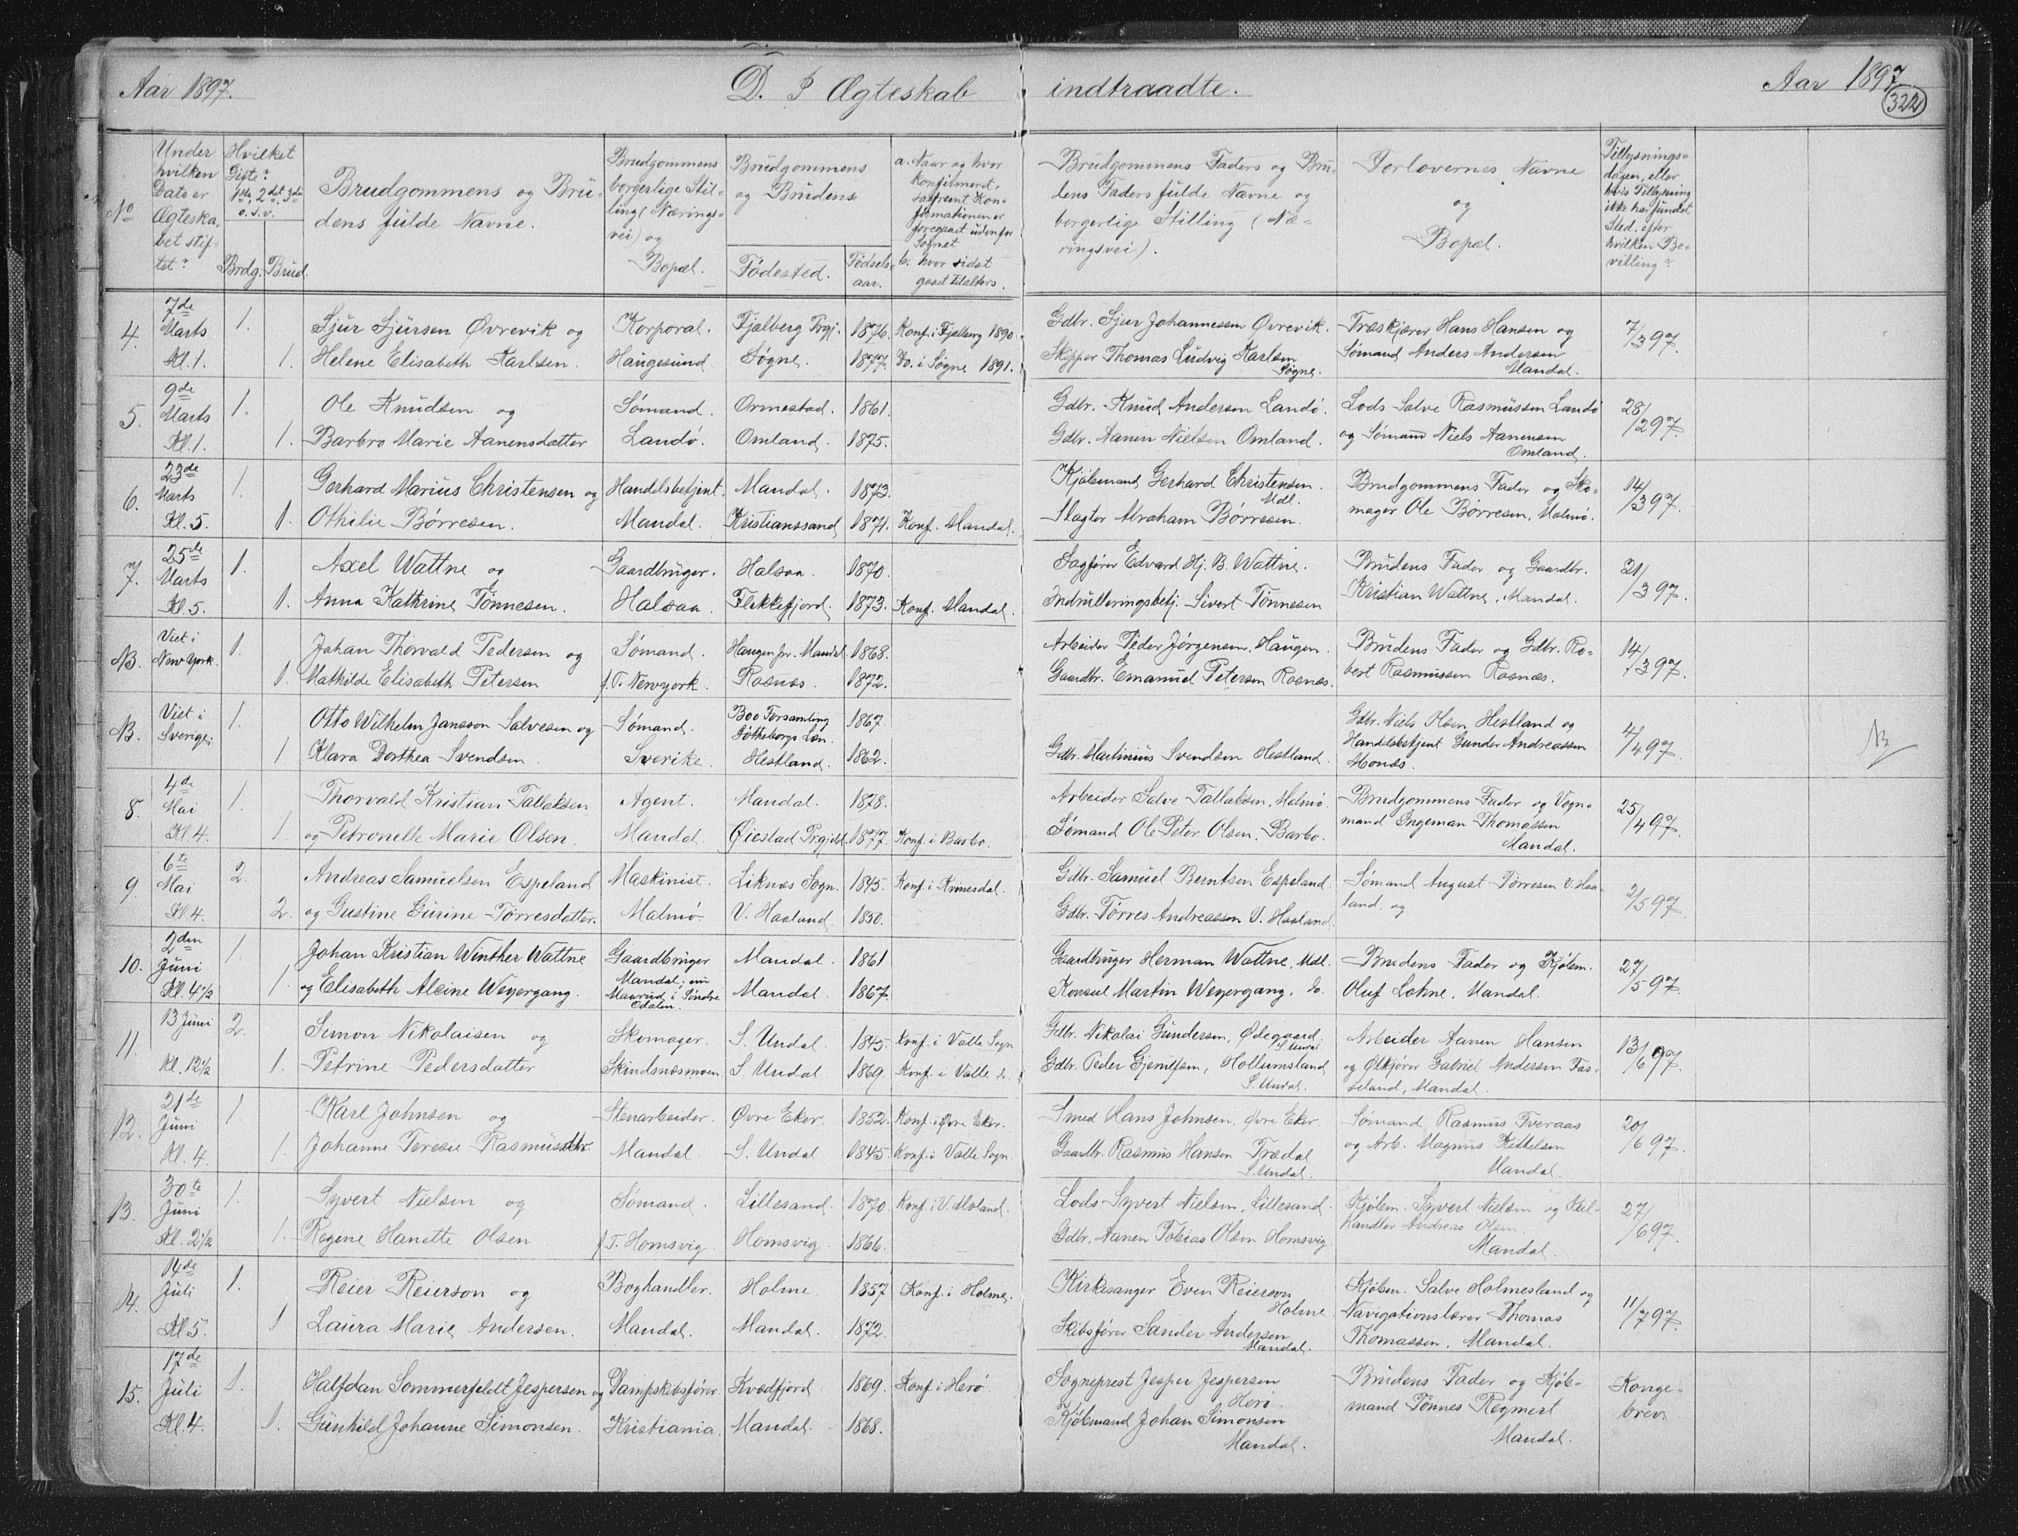 Aar 1897. D. I Ægteskab indtraadte. Aar 1897
322
No
Under hvilken Dato er Ægteskabet stiftet?
Hvilket Gifte? 1ste, 2det, 3die o.s.v.
Brdg. Brud.
Brudgommens og Brudens fulde Navne.
Brudgommens borgerlige Stilling (Næringsvei) og Bopæl.
Brudgommens og Brudens
Fødested. Fødselsaar.
a. Naar og hvor konfirmeret, saafremt Konfirmationen er foregaaet udenfor Sognet
b. hvor sidst gaaet til alters.
Brudgommens Faders og Brudens Faders fulde Navne og borgerlige Stilling (Næringsvei).
Forlovernes Navne og Bopæl.
Tillysningsdagen, eller hvis Tillysning ikke har fundet Sted, efter hvilken Bevilling?
4. 7de Marts Kl. 1. 1. Sjur Sjursen Øvrevik og Korporal. Fjelberg Prgj. 1876. Konf. i Fjelberg 1890. Gdbr. Sjur Johannessen Øvrevik. Træskjærer Hans Hansen og 7/397.
1. Helene Elisabeth Karlsen. Haugesund Søgne. 1877. Do. i Søgne 1891. Skipper Thomas Ludvig Karlsen Søgne. Sømand Anders Andersen Mandal.
5. 9de Marts Kl. 1. 1. Ole Knudsen og Sømand. Ormestad. 1861. Gdbr. Knud Andersen Landø. Lods Salve Rasmussen Landø 28/297.
1. Barbro Marie Aanensdatter Landø. Omland. 1875. Gdbr. Aanen Nielsen Omland. og Sømand Niels Aanensen Omland.
6. 23de Marts Kl. 5. 1. Gerhard Marius Christensen og Handelsbetjent. Mandal. 1873. Kjøbmand Gerhard Christensen. Mdl. Brudgommens Fader og Sko- 14/397.
1. Othilie Børresen. Mandal. Kristianssand 1871. Konf. Mandal. Slagter Abraham Børresen. mager Ole Børresen, Malmø.
7. 25de Marts Kl. 5. 1. Axel Wattne og Gaardbruger. Halsaa. 1870. Sagfører Edvard Hj. B. Wattne. Brudens Fader og Gaardbr. 21/397.
1. Anna Kathrine Tønnesen. Halsaa. Flekkefjord. 1873. Konf. Mandal. Indrulleringsbetj. Sivert Tønnesen Kristian Wattne, Mandal.
NB. Viet i New York. 1. Johan Thorvald Pedersen og Sømand. Haugen pr. Mandal 1868. Arbeider Peder Jørgensen, Haugen. Brudens Fader og Gdbr. Ro- 14/397.
1. Mathilde Elisabeth Petersen f. T. Newyork. Rosnæs. 1872. Gaardbr. Emanuel Petersen Rosnæs. bert Rasmussen Rosnæs.
NB. Viet i Sverige. 1. Otto Wilhelm Jansson Salvesen og Sømand. Boo Forsamling Götheborgs Län. 1867. Gdbr. Niels Olsen Hestland og 4/497.
1 Klara Dorthea Svendsen Sverike. Hestland. 1862. Gdbr. Martinius Svendsen Hestland. Handelsbetjent Gunder Andreassen Monæs. NB
8. 4de Mai Kl 4. 1. Thorvald Kristian Tallaksen Agent. Mandal. 1878. Arbeider Salve Tallaksen, Malmø Brudgommens Fader og Vogn- 25/497.
1. og Petronelle Marie Olsen. Mandal Øiestad Prgjeld. 1877. Konf. i Barbo. Sømand Ole Peter Olsen, Barbo. mand Ingeman Thomassen Mandal.
9. 6te Mai Kl 4. 2. Andreas Samuelsen Espeland Maskinist. Liknæs Sogn. 1845. Konf. i Kvinesdal. Gdbr. Samuel Berntsen Espeland. Sømand August Tørresen V. Haa- 2/597.
2. og Gustine Gurine Tørresdatter. Malmø. V. Haaland. 1850. Gdbr. Tørres Andreassen V. Haaland. land. og
10. 2den Juni Kl. 4½ 1. Johan Kristian Winther Wattne Gaardbruger Mandal. 1861 Gaardbruger Herman Wattne, Mdl. Brudens Fader og Kjøbm. 27/597.
1 og Elisabeth Alcine Weyergang. Mandal, nu Maarud i Søndre Odalen. Mandal. 1867. Konsul Martin Weyergang, do. Oluf Lohne, Mandal.
11. 13 Juni Kl. 12½ 2. Simon Nikolaisen og Skomager. S. Undal. 1845. Konf. i Valle Sogn Gdbr. Nikolai Gundersen, Ødegaard S. Undal Arbeider Aanen Hansen 13/697.
1. Petrine Pedersdatter Skindsnæsmoen S. Undal 1869. Konf. i Valle do. Gdbr. Peder Gjemlsen, Hollumsland, S. Undal. og Ølkjører Gabriel Andersen Fasseland, Mandal.
12. 21de Juni Kl. 4. 1 Karl Johnsen og Stenarbeider. Øvre Eker. 1852. Konf. i Øvre Eker. Smed Hans Johnsen, Øvre Eker. Sømand Rasmus Tveraas 20/697.
1. Johanne Terese Rasmusdtr. Mandal. S. Undal 1845. Konf. i Valle Sogn. Gaardbr. Rasmus Hansen Trædal S. Undal. og Arb. Magnus Kittelsen Mandal.
13. 30te Juni Kl. 2½ 1. Syvert Nielsen og Sømand. Lillesand. 1870 Konf. i V. Moland. Lods Syvert Nielsen, Lillesand. Kjøbm. Syvert Nielsen og Høl- 27/697.
1. Regine Hanette Olsen f. T. Homsvig. Homsvig. 1866. Gdbr. Aanen Tobias Olsen Homsvig handler Andreas Olsen. Mandal.
14. 14de Juli Kl 5. 1. Reier Reierson og Boghandler. Holme 1857 Konf. i Holme. Kirkesanger Even Reierson Holme. Kjøbm. Salve Holmesland og 11/797.
1 Laura Marie Andersen. Mandal. Mandal. 1872. Skibsfører Sander Andersen Mandal. Navigationslærer Thomas Thomassen, Mandal.
15. 17de Juli Kl. 4. 1. Halfdan Sommerfeldt Jespersen og Dampskibsfører Kvædfjord 1869. Konf. i Herø. Sogneprest Jesper Jespersen Herø. Brudens Fader og Kjøb- Kongebrev.
1. Gunhild Johanne Simonsen. Kristiania. Mandal. 1868. Kjøbmand Johan Simonsen Mandal. mand Tønnes Reymert Mandal.